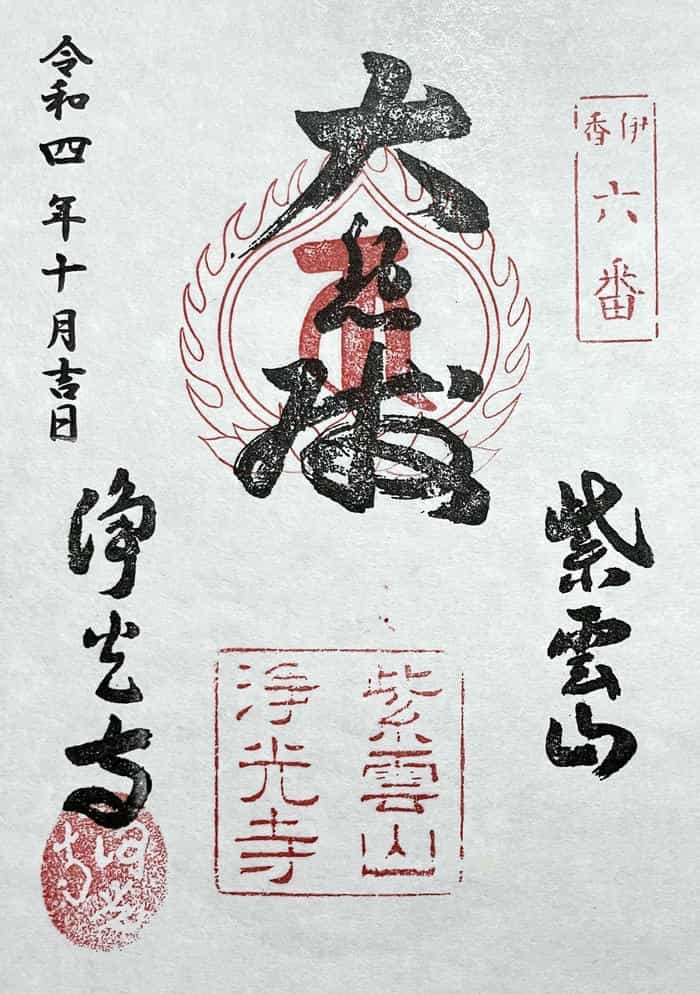 伊香
六番
紫雲山
大悲殿
紫雲山
浄光寺
令和四年十月吉日
浄光寺